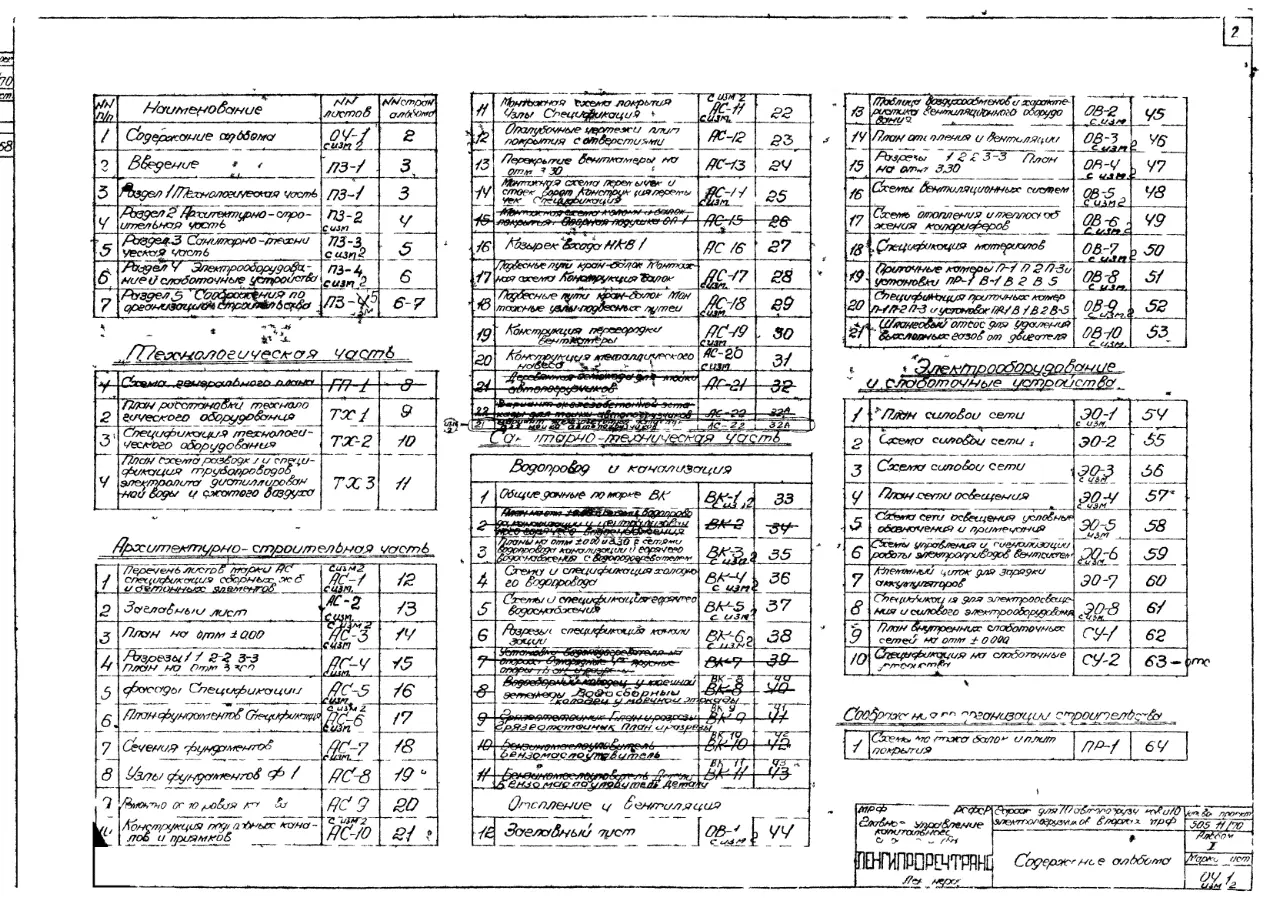 2
NN п/п Наименование NN листов NN стран альбома
1 Содержание альбома ОЧ-1 с изм 2 2
2 Введение ПЗ-1 3
3 Раздел 1 Технологическая часть ПЗ-1 3
4 Раздел 2 Архитектурно-строительная часть ПЗ-2 с изм 4
5 Раздел 3 Санитарно-техническая часть ПЗ-3 с изм 2 5
6 Раздел 4 Электрооборудование и слаботочные устройства ПЗ-4 с изм 2 6
7 Раздел 5 Соображения по организации строительства ПЗ-4,5 6-7
Технологическая часть
1 Схема генерального плана ГП-1 8
2 План расстановки технологического оборудования ТХ 1 9
3 Спецификация технологического оборудования ТХ-2 10
4 План схема разводки и спецификация трубопроводов электролита дистиллированной воды и сжатого воздуха ТХ 3 11
Архитектурно-строительная часть
1 Перечень листов марки АС спецификация сборных ж б и бетонных элементов с изм 2 АС-1 с изм. 12
2 Заглавный лист АС-2 с изм 13
3 План на отм ±0.00 с изм 2 АС-3 с изм 14
4 Разрезы 1 1 2-2 3-3 План на отм АС-4 с изм 15
5 Фасады Спецификации АС-5 с изм 16
6 План фундаментов Спецификация с изм 2 АС-6 с изм 17
7 Сечения фундаментов АС-7 с изм 18
8 Узлы фундаментов Ф 1 АС-8 19
9 АС 9 20
10 Конструкция каналов и приямков с изм 2 АС-10 21
11 Монтажная схема покрытия Узлы Спецификация с изм 2 АС-11 с изм. 22
12 Опалубочные чертежи плит покрытия с отверстиями АС-12 23
13 Перекрытие венткамеры на отм 3 30 АС-13 24
14 Монтажная схема перемычек и стоек ворот Конструкция перемычек Спецификация АС-14 с изм. 25
15 Монтажная схема колонн и балок покрытия. Опорная подушка ОП-1 АС-15 26
16 Козырек входа НКВ 1 АС 16 27
17 Подвесные пути кран-балок Монтажная схема Конструкция балок АС-17 с изм. 28
18 Подвесные пути кран-балок Монтажные узлы подвесных путей АС-18 с изм. 29
19 Конструкция перегородки венткамеры АС-19 с изм 30
20 Конструкция металлического навеса АС-20 с изм 31
21 Деревянная эстакада для мойки автопогрузчиков АС-21 32
22 Вариант железобетонной эстакады для мойки автопогрузчиков АС-22 32А
21 АС-22 32А
Санитарно-техническая часть
Водопровод и канализация
1 Общие данные по марке ВК ВК-1 с изм 2 33
2 ВК-2 34
3 Планы на отм ±0.00 и 3.30 с сетями водопровода канализации и горячего водоснабжения с водоподогревателем ВК-3 с изм 2 35
4 Схемы и спецификация холодного водопровода ВК-4 с изм 2 36
5 Схемы и спецификация горячего водоснабжения ВК-5 с изм 2 37
6 Разрезы спецификация канализации ВК-6 с изм 2 38
7 Установка водоподогревателя на опорах ВК-7 39
8 Водосборный колодец у моечной эстакады ВК-8 40
Водосборный колодец у моечной эстакады ВК-8 40
9 Грязеотстойник План и разрезы ВК-9 41
Грязеотстойник План и разрезы ВК 9 41
10 Бензомаслоуловитель ВК-10 42
Бензомаслоуловитель ВК 10 42
11 Бензомаслоуловитель Детали ВК-11 43
Бензомаслоуловитель детали ВК 11 43
Отопление и вентиляция
12 Заглавный лист ОВ-1 с изм 2 44
13 Таблица воздухообменов и характеристика вентиляционного оборудования ОВ-2 с изм 45
14 План отопления и вентиляции ОВ-3 с изм 2 46
15 Разрезы 1 2 2 3-3 План на отм 3.30 ОВ-4 с изм. 47
16 Схемы вентиляционных систем ОВ-5 с изм 2 48
17 Схема отопления и теплоснабжения калориферов ОВ-6 с изм 2 49
18 Спецификация материалов ОВ-7 с изм 2 50
19 Приточные камеры П-1 П 2 П-3 и установки ПР-1 В-1 В 2 В 5 ОВ-8 с изм. 51
20 Спецификация приточных камер П-1 П-2 П-3 и установок ПР-1 В 1 В 2 В-5 ОВ-9 с изм. 2 52
21 Шланговый отсос для удаления выхлопных газов от двигателя ОВ-10 с изм. 53
Электрооборудование и слаботочные устройства
1 План силовой сети ЭО-1 с изм. 54
2 Схема силовой сети ЭО-2 55
3 Схема силовой сети ЭО-3 с изм 56
4 План сети освещения ЭО-4 с изм 57
5 Схема сети освещения условные обозначения и примечания ЭО-5 изм 58
6 Схемы управления и сигнализации работы электроприводов вентсистем ЭО-6 с изм 59
7 Клеммный щиток для зарядки аккумуляторов ЭО-7 60
8 Спецификация для электроосвещения и силового электрооборудования ЭО-8 с изм. 61
9 План внутренних слаботочных сетей на отм ± 0 000 СУ-1 62
10 Спецификация на слаботочные устройства СУ-2 63
Соображения по организации строительства
1 Схемы монтажа балок и плит покрытия ПР-1 64
МРФ РСФСР
Главное управление капитальнoго
ЛЕНГИПРОРЕЧТРАНС
Содержание альбома
505 11/70
Альбом
I
Марка лист
ОЧ 1
изм 2